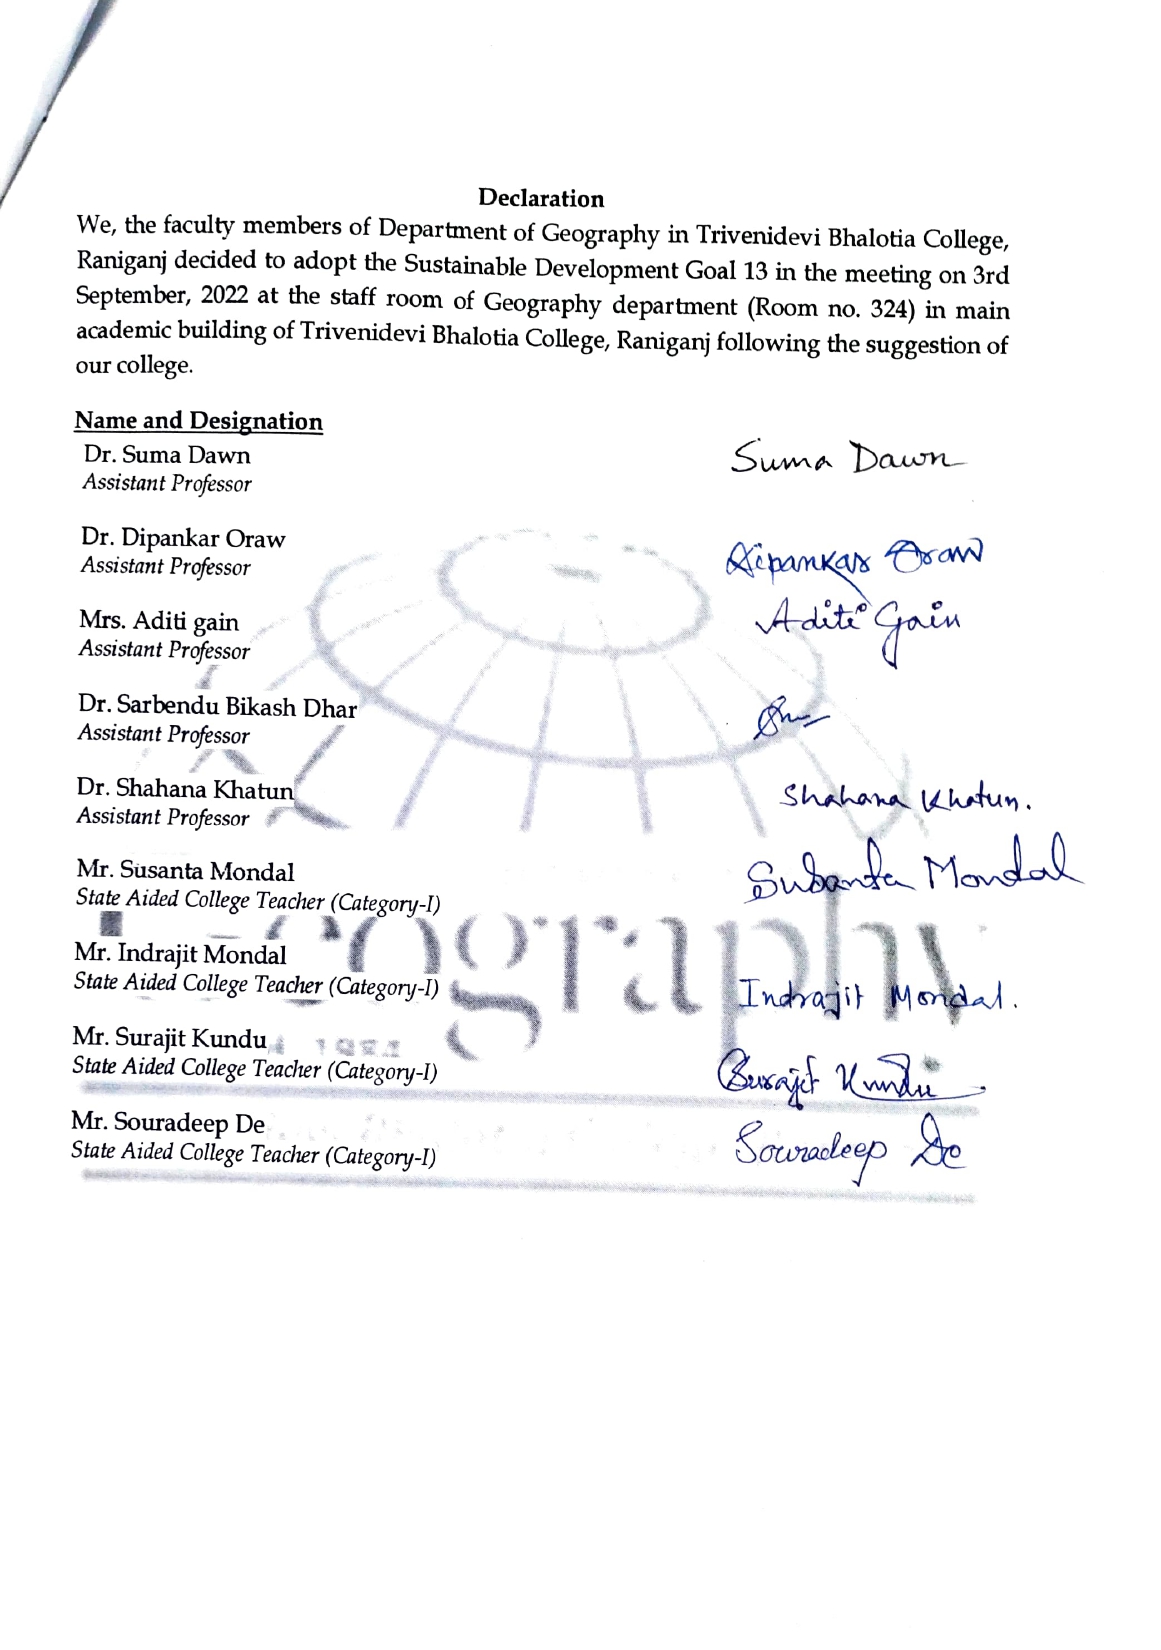 Declaration
We, the faculty members of Department of Geography in Trivenidevi Bhalotia College,
Raniganj decided to adopt the Sustainable Development Goal 13 in the meeting on 3rd
September, 2022 at the staff room of Geography department (Room no. 324) in main
academic building of Trivenidevi Bhalotia College, Raniganj following the suggestion of
our college.
Name and Designation
Dr. Suma Dawn Suma Dawn
Assistant Professor
Dr. Dipankar Oraw Dipankar Oraw
Assistant Professor
Mrs. Aditi gain Aditi Gain
Assistant Professor
Dr. Sarbendu Bikash Dhar
Assistant Professor
Dr. Shahana Khatun Shahana Khatun.
Assistant Professor
Mr. Susanta Mondal Susanta Mondal
State Aided College Teacher (Category-I)
Mr. Indrajit Mondal
State Aided College Teacher (Category-I) Indrajit Mondal.
Mr. Surajit Kundu
State Aided College Teacher (Category-I) Surajit Kundu
Mr. Souradeep De Souradeep De
State Aided College Teacher (Category-I)